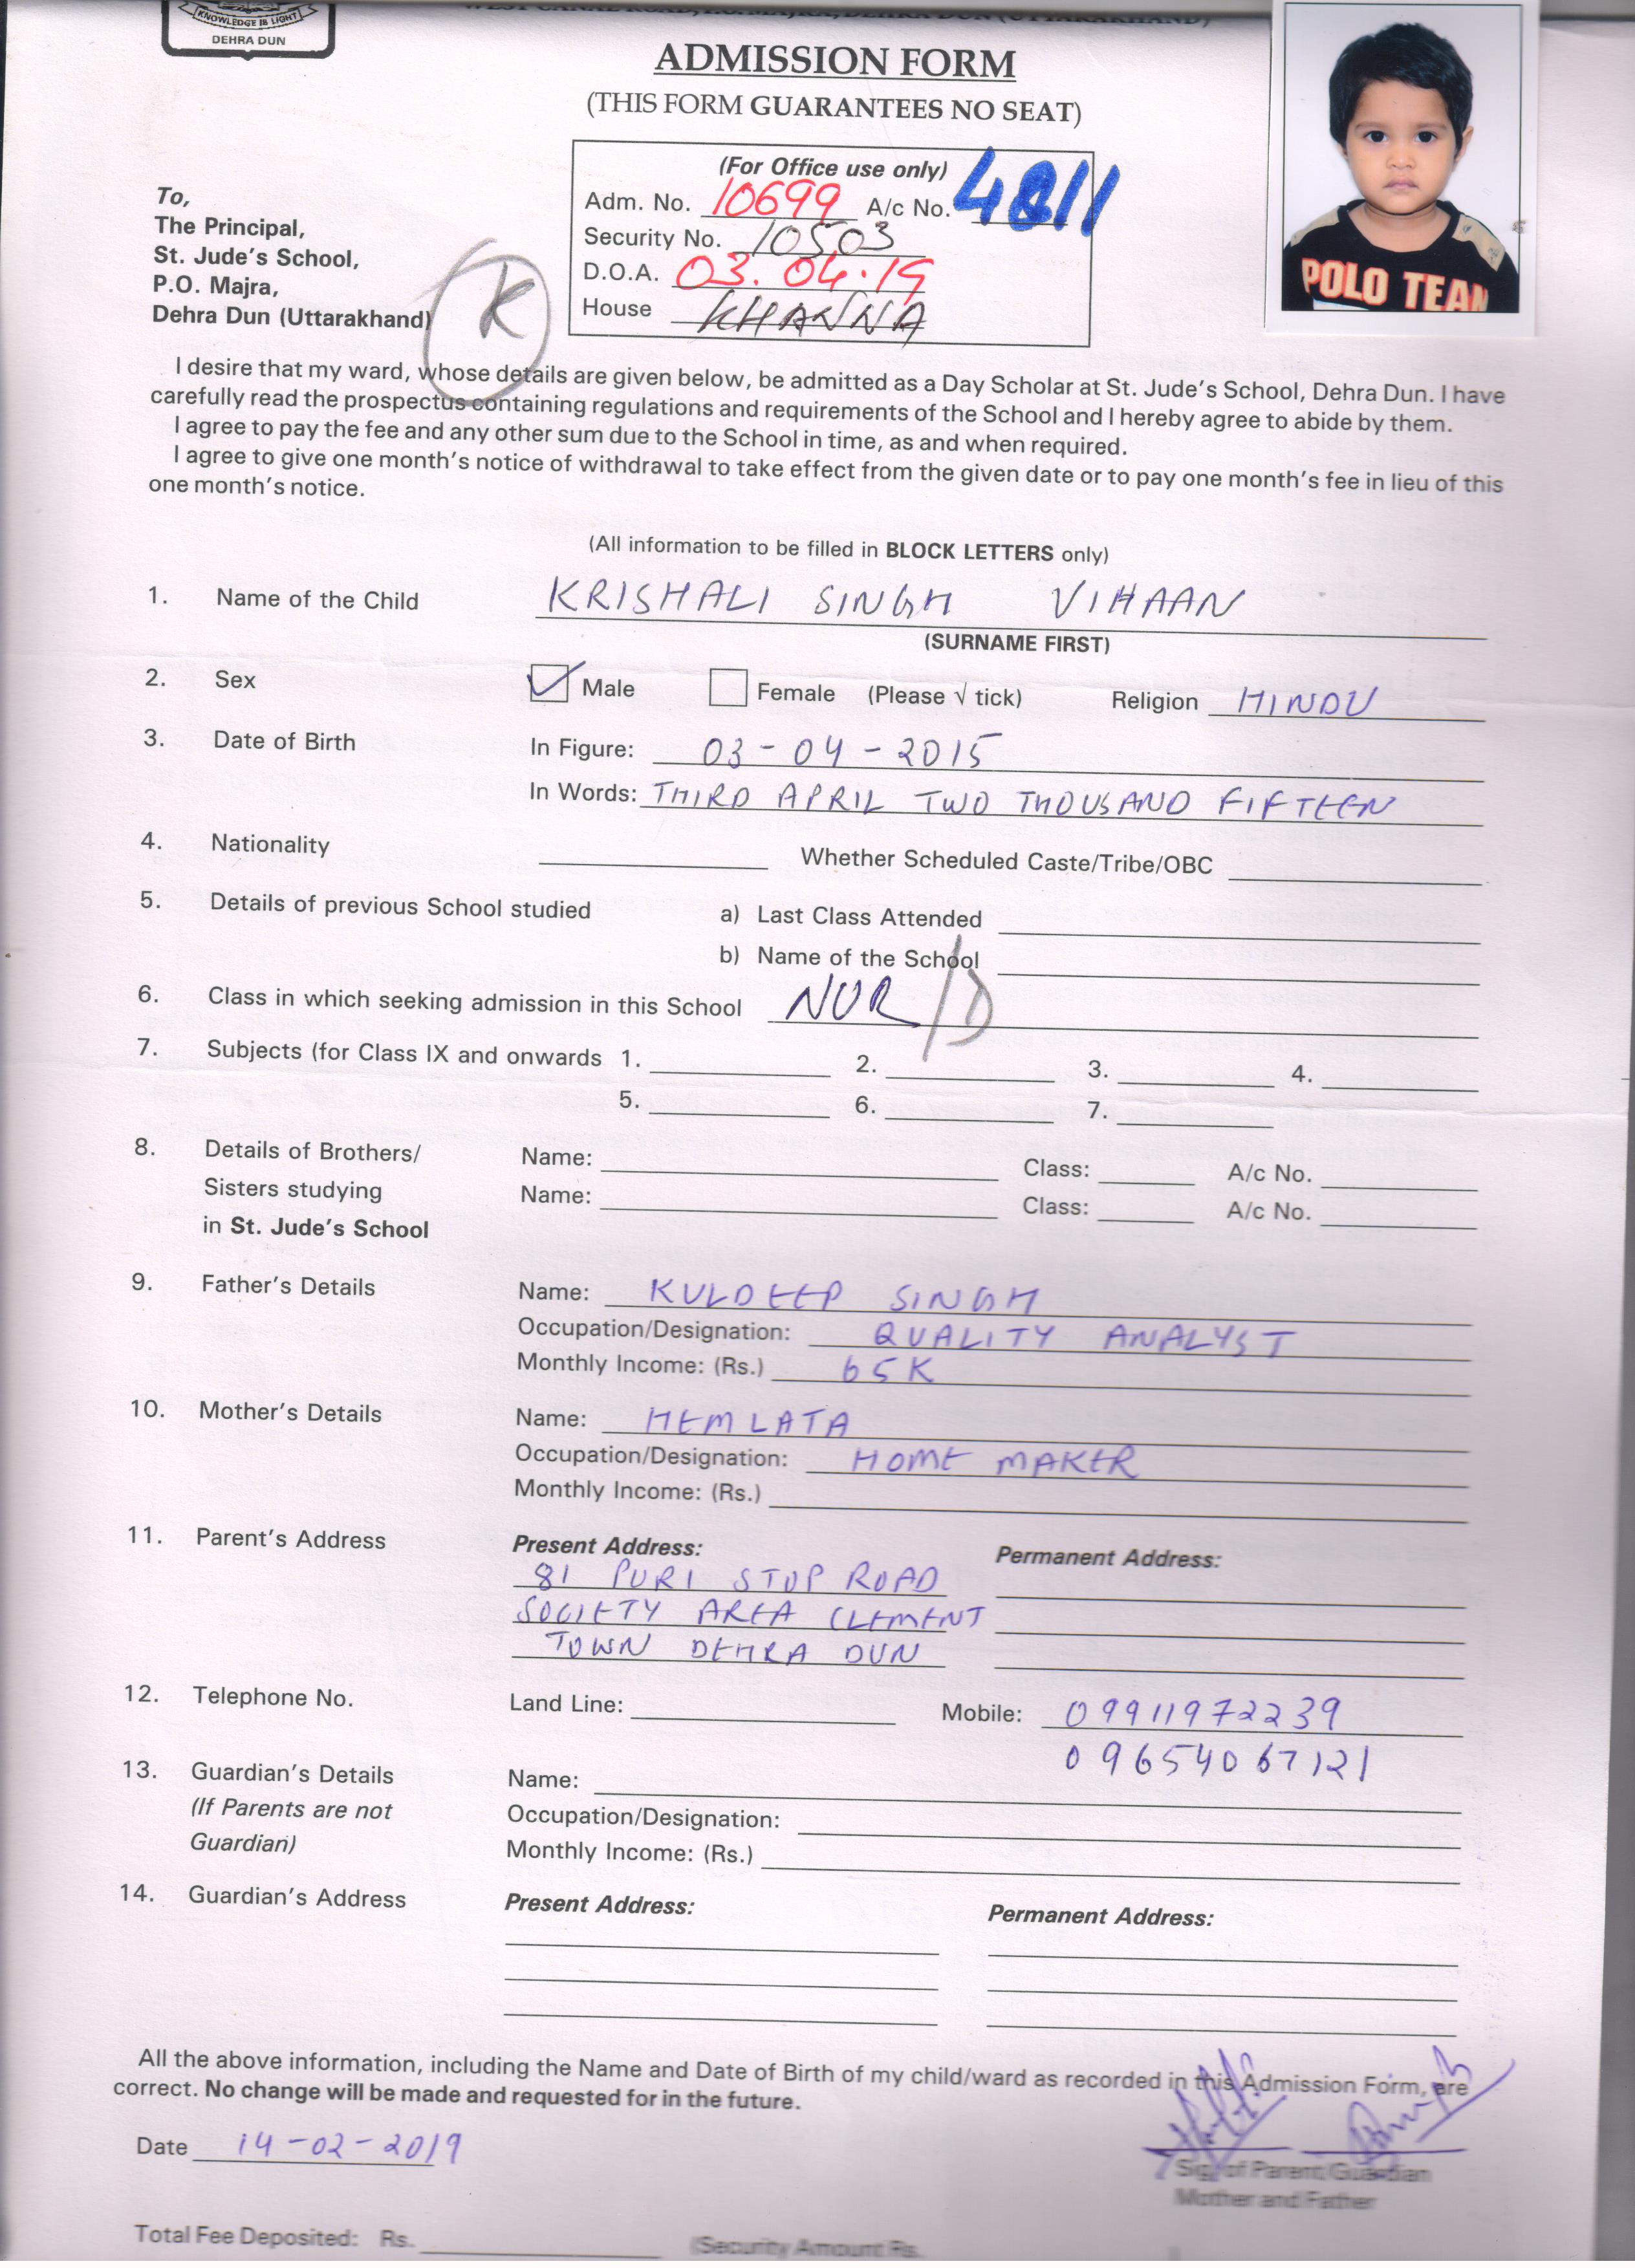 KNOWLEDGE IS LIGHT
DEHRA DUN
WEST CANAL ROAD, P.O. MAJRA, DEHRA DUN (UTTARAKHAND)
ADMISSION FORM
(THIS FORM GUARANTEES NO SEAT)
(For Office use only)
Adm. No. 10699 A/c No. 4811
Security No. 10503
D.O.A. 03.04.19
House KHANNA
To,
The Principal,
St. Jude's School,
P.O. Majra,
Dehra Dun (Uttarakhand)
K
POLO TEAM
I desire that my ward, whose details are given below, be admitted as a Day Scholar at St. Jude's School, Dehra Dun. I have
carefully read the prospectus containing regulations and requirements of the School and I hereby agree to abide by them.
I agree to pay the fee and any other sum due to the School in time, as and when required.
I agree to give one month's notice of withdrawal to take effect from the given date or to pay one month's fee in lieu of this
one month's notice.
(All information to be filled in BLOCK LETTERS only)
1. Name of the Child KRISHALI SINGH VIHAAN
(SURNAME FIRST)
2. Sex Male Female (Please √ tick) Religion HINDU
3. Date of Birth In Figure: 03-04-2015
In Words: THIRD APRIL TWO THOUSAND FIFTEEN
4. Nationality Whether Scheduled Caste/Tribe/OBC
5. Details of previous School studied a) Last Class Attended
b) Name of the School
6. Class in which seeking admission in this School NUR/D
7. Subjects (for Class IX and onwards 1. 2. 3. 4.
5. 6. 7.
8. Details of Brothers/ Name: Class: A/c No.
Sisters studying Name: Class: A/c No.
in St. Jude's School
9. Father's Details Name: KULDEEP SINGH
Occupation/Designation: QUALITY ANALYST
Monthly Income: (Rs.) 65K
10. Mother's Details Name: HEMLATA
Occupation/Designation: HOME MAKER
Monthly Income: (Rs.)
11. Parent's Address Present Address: Permanent Address:
81 PURI STOP ROAD
SOCIETY AREA CLEMENT
TOWN DEHRA DUN
12. Telephone No. Land Line: Mobile: 09911972239
09654067121
13. Guardian's Details Name:
(If Parents are not Occupation/Designation:
Guardian) Monthly Income: (Rs.)
14. Guardian's Address Present Address: Permanent Address:
All the above information, including the Name and Date of Birth of my child/ward as recorded in this Admission Form, are
correct. No change will be made and requested for in the future.
Date 14-02-2019
Sig. of Parent/Guardian
Mother and Father
Total Fee Deposited: Rs. (Security Amount Rs.